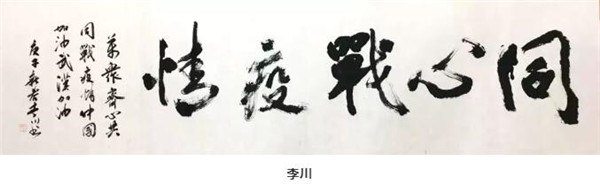 同心戰疫情
萬衆齊心共
同戰疫情中國
加油武漢加油
庚子新春李川書
李川